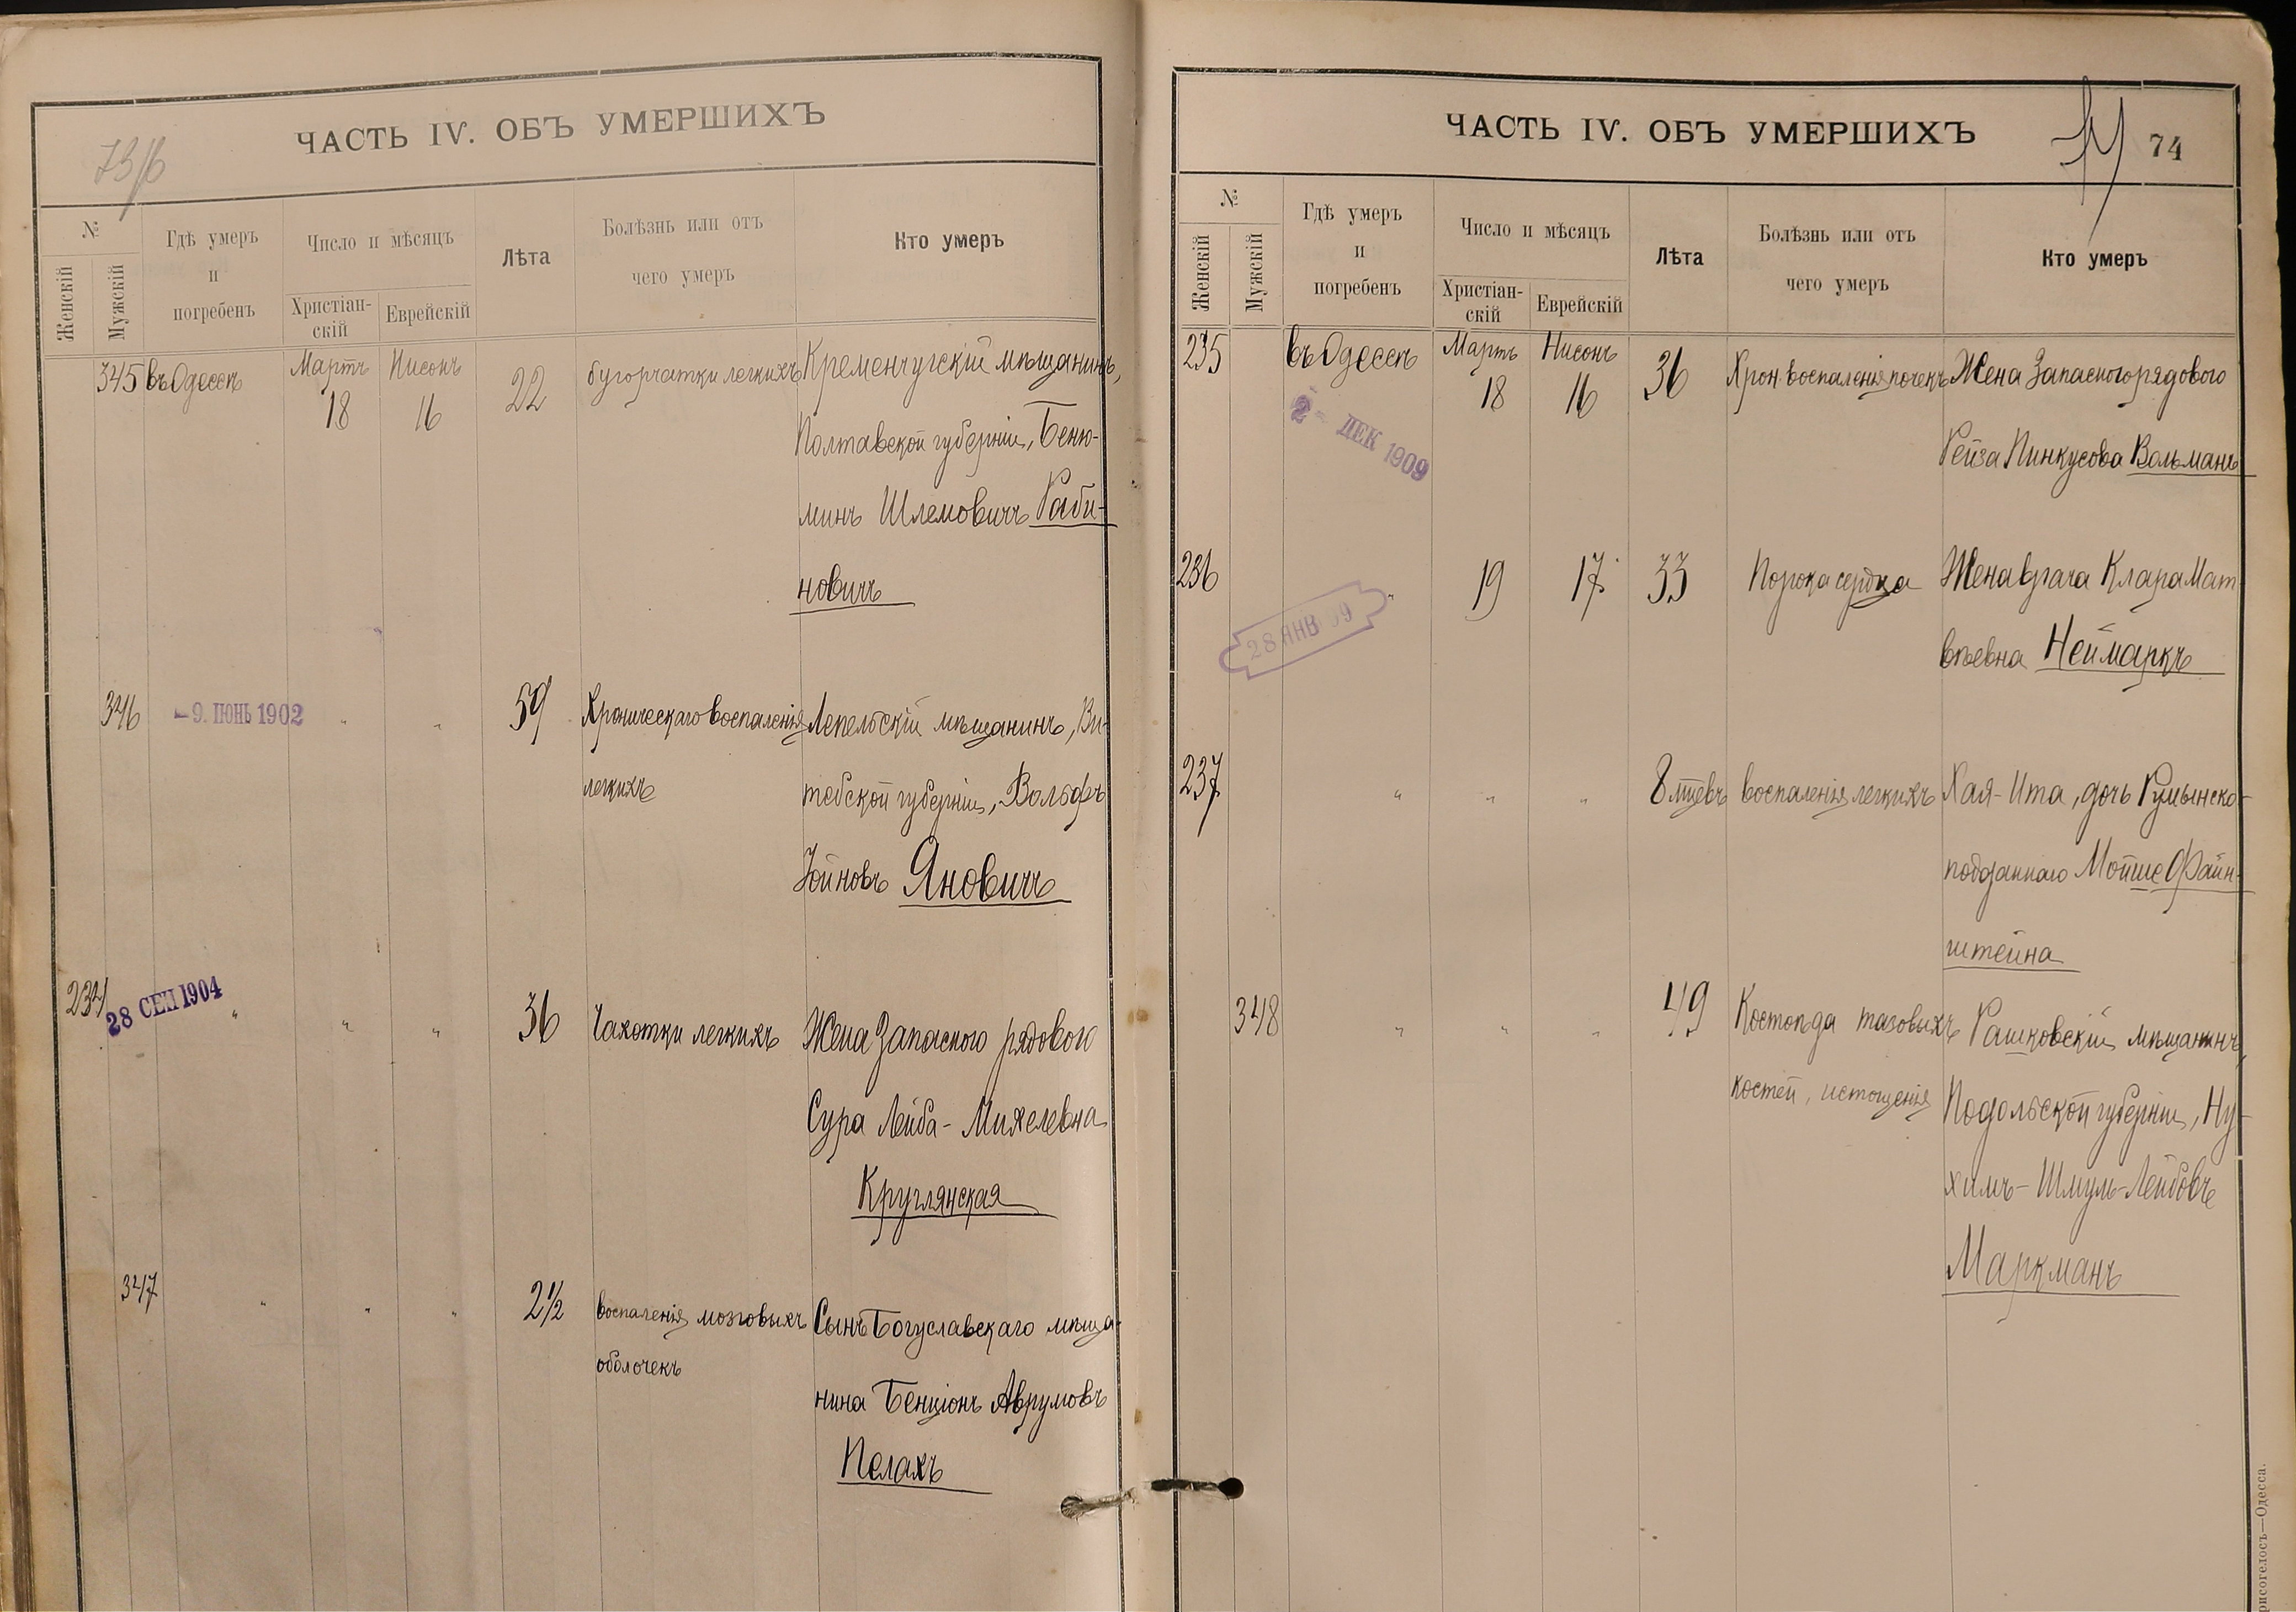 73/б
ЧАСТЬ IV. ОБЪ УМЕРШИХЪ
№
Женскій
Мужскій
Гдѣ умеръ
и
погребенъ
Число и мѣсяцъ
Христіан-
скій
Еврейскій
Лѣта
Болѣзнь или отъ
чего умеръ
Кто умеръ
345 въ Одессѣ Мартъ 18 Нисонъ 16 22 бугорчатки легкихъ Кременчугскій мѣщанинъ,
Полтавской губерніи, Беню-
минъ Шлемовичъ Раби-
новичъ
346 -9. ІЮНЬ 1902 „ „ 59 Хроническаго воспаленія Лепельскій мѣщанинъ, Ви-
легкихъ тебской губерніи, Вольфъ
Яновичъ
234 28 СЕН 1904 „ „ „ 36 Чахотки легкихъ Жена Запасного рядового
Сура Лейба-Михелевна
Круглянская
347 „ „ „ 2½ воспаленія мозговыхъ Сынъ Богуславскаго мѣща-
оболочекъ
нина Бенціонъ Аврумовъ
Пелахъ
ЧАСТЬ IV. ОБЪ УМЕРШИХЪ
74
№
Женскій
Мужскій
Гдѣ умеръ
и
погребенъ
Число и мѣсяцъ
Христіан-
скій
Еврейскій
Лѣта
Болѣзнь или отъ
чего умеръ
Кто умеръ
235 въ Одессѣ Мартъ 18 Нисонъ 16 36 Хрон. воспаленія почекъ Жена Запасного рядового
2 - ДЕК 1909
Рейза Пинкусова Вольманъ
236 „ 19 17 33 Порока сердца Жена врача Клара Мат
28 ЯНВ 09
вѣевна Неймаркъ
237 „ „ „ 8 мѣсяцевъ воспаленія легкихъ Хая-Ита, дочь Румынско-
подданнаго Мойше Файн-
штейна
348 „ „ „ 49 Костоѣда тазовыхъ Рашковскій мѣщанинъ,
костей, истощенія Подольской губерніи, Ну-
химъ-Шмуль-Лейбовъ
Маркманъ
Одесса.